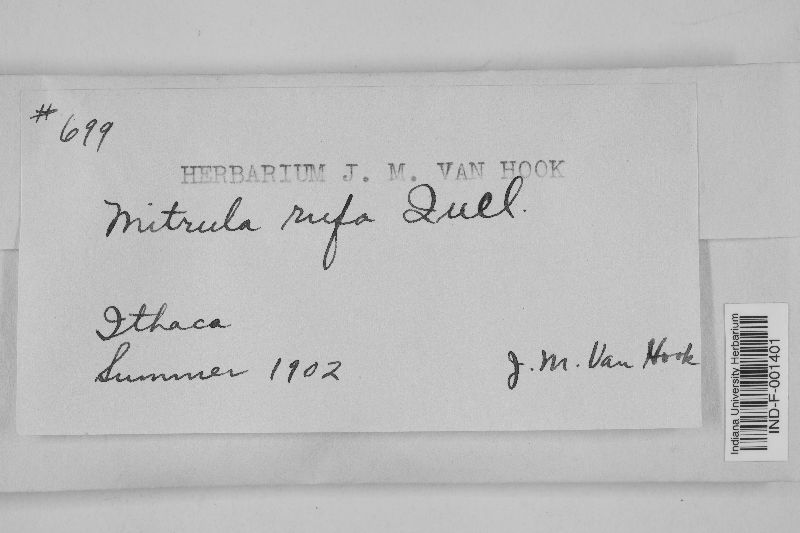 # 699
HERBARIUM J. M. VAN HOOK
Mitrula rufa Quel.
Ithaca
Summer 1902
J. M. Van Hook
Indiana University Herbarium
IND-F-001401